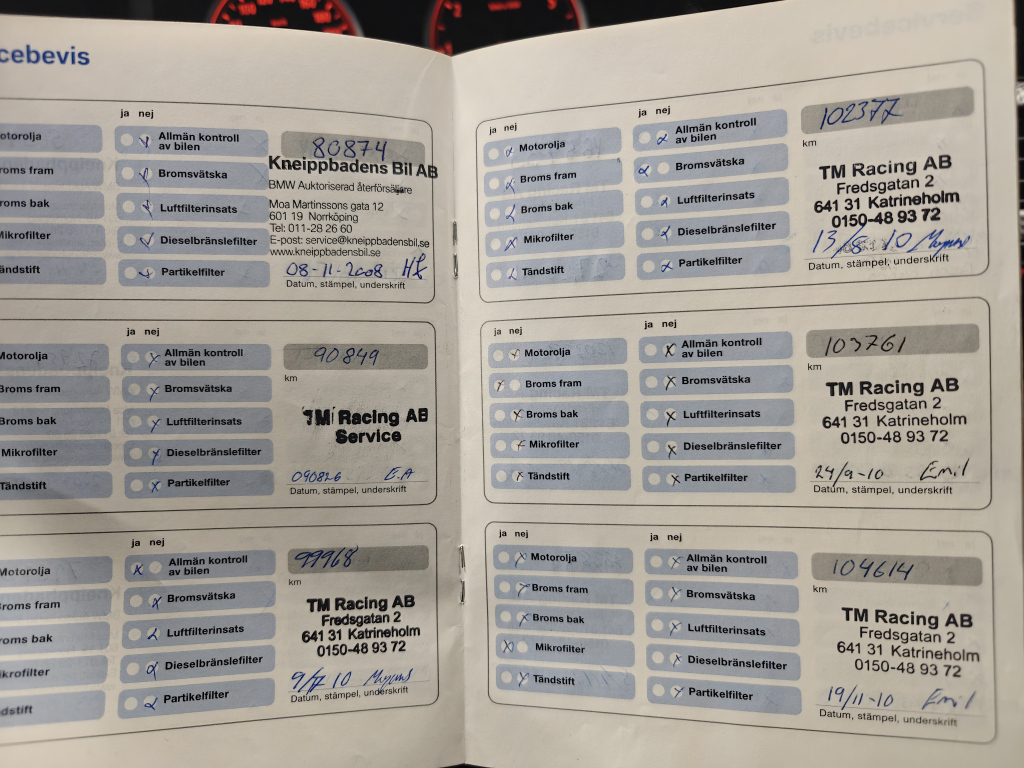 cebevis
ja nej
otorolja
roms fram
oms bak
likrofilter
ändstift
Allmän kontroll
av bilen
Bromsvätska
Luftfilterinsats
Dieselbränslefilter
Partikelfilter
80874
Kneippbadens Bil AB
BMW Auktoriserad återförsäljare
Moa Martinssons gata 12
601 19 Norrköping
Tel: 011-28 26 60
E-post: service@kneippbadensbil.se
www.kneippbadensbil.se
08-11-2008
Datum, stämpel, underskrift
ja nej
Motorolja
Broms fram
Broms bak
Mikrofilter
Tändstift
Allmän kontroll
av bilen
Bromsvätska
Luftfilterinsats
Dieselbränslefilter
Partikelfilter
90849
km
TM Racing AB
Service
090826 E.A
Datum, stämpel, underskrift
ja nej
Motorolja
Broms fram
oms bak
krofilter
dstift
Allmän kontroll
av bilen
Bromsvätska
Luftfilterinsats
Dieselbränslefilter
Partikelfilter
99968
km
TM Racing AB
Fredsgatan 2
641 31 Katrineholm
0150-48 93 72
9/7 10
Datum, stämpel, underskrift
ja nej
Motorolja
Broms fram
Broms bak
Mikrofilter
Tändstift
ja nej
Allmän kontroll
av bilen
Bromsvätska
Luftfilterinsats
Dieselbränslefilter
Partikelfilter
102377
km
TM Racing AB
Fredsgatan 2
641 31 Katrineholm
0150-48 93 72
13/8 10
Datum, stämpel, underskrift
ja nej
Motorolja
Broms fram
Broms bak
Mikrofilter
Tändstift
ja nej
Allmän kontroll
av bilen
Bromsvätska
Luftfilterinsats
Dieselbränslefilter
Partikelfilter
103761
km
TM Racing AB
Fredsgatan 2
641 31 Katrineholm
0150-48 93 72
24/9-10 Emil
Datum, stämpel, underskrift
ja nej
Motorolja
Broms fram
Broms bak
Mikrofilter
Tändstift
ja nej
Allmän kontroll
av bilen
Bromsvätska
Luftfilterinsats
Dieselbränslefilter
Partikelfilter
104614
km
TM Racing AB
Fredsgatan 2
641 31 Katrineholm
0150-48 93 72
19/11-10 Emil
Datum, stämpel, underskrift